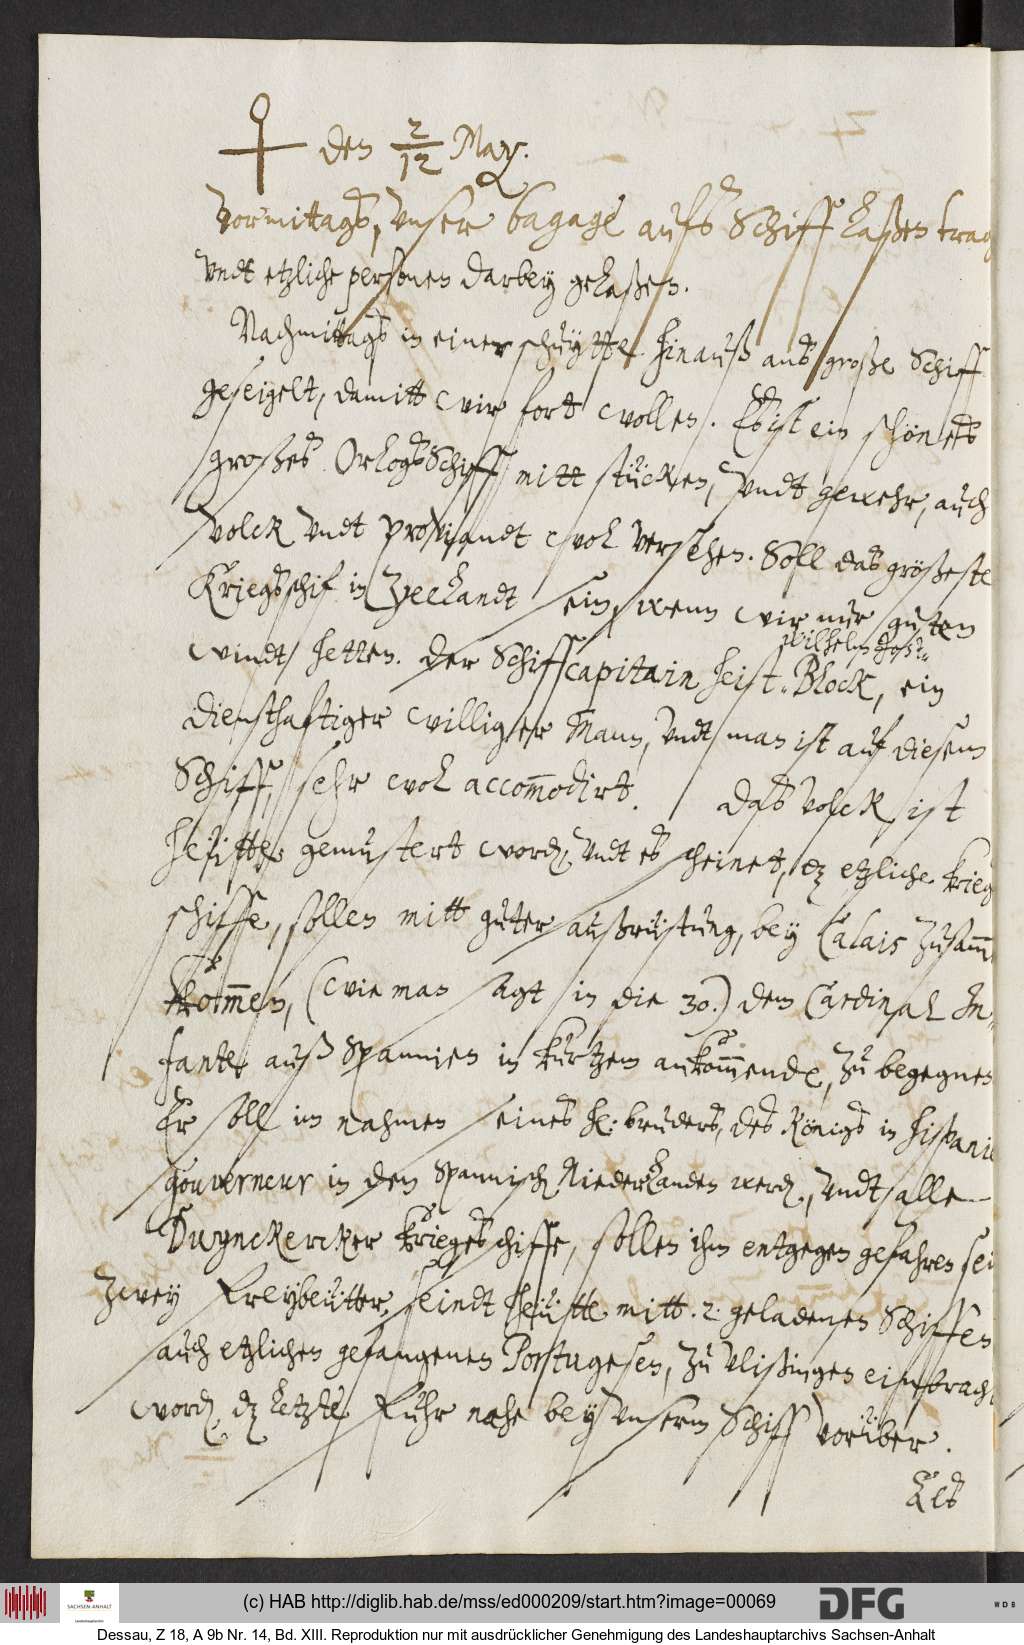 den 2/12 May.
Vormittags, unser bagage aufs Schiff laßen trag
undt etzliche personen darbey gelaßen.
Nachmittags in einer schuytte hinauß ans große Schiff
geseigelt, damitt wir fort wollen. Es ist ein schönes
großes Orlogs Schiff mitt stücken, undt gewehr, auch
volck undt proviandt wol versehen. Soll das größeste
Kriegsschif in Zeelandt sein, wenn wir nur guten
windt hetten. Der Schiffcapitain heist Wilhelm Block, ein
diensthaftiger williger Mann, undt man ist auf diesem
Schiff, sehr wol accom̅odirt. das volck ist
heütte gemustert word. undt es scheinet, dz etzliche krieg
schiffe, sollen mitt guter außrüstung, bey Calais zusam̅
kom̅en, (wie man sagt in die 30.) dem Cardinal In-
fante auß Spannien in kurtzem ankom̅ende, zu begegnen
Er soll im nahmen seines h: bruders, des Königs in hispanie
gouverneur in den Spannisch. Niederlanden werd., undt alle
Duynckercker kriegesschiffe, sollen ihm entgegen gefahren sei
Zwey Freybeütter, seindt heütte mitt .2. geladenen Schiffen
auch etzlichen gefangenen Portugesen, zu Vlißingen einbrach
word. dz letzte fuhr nahe bey unserm Schiff vorüber.
Les
(c) HAB http://diglib.hab.de/mss/ed000209/start.htm?image=00069
SACHSEN-ANHALT
DFG
WDB
Dessau, Z 18, A 9b Nr. 14, Bd. XIII. Reproduktion nur mit ausdrücklicher Genehmigung des Landeshauptarchivs Sachsen-Anhalt